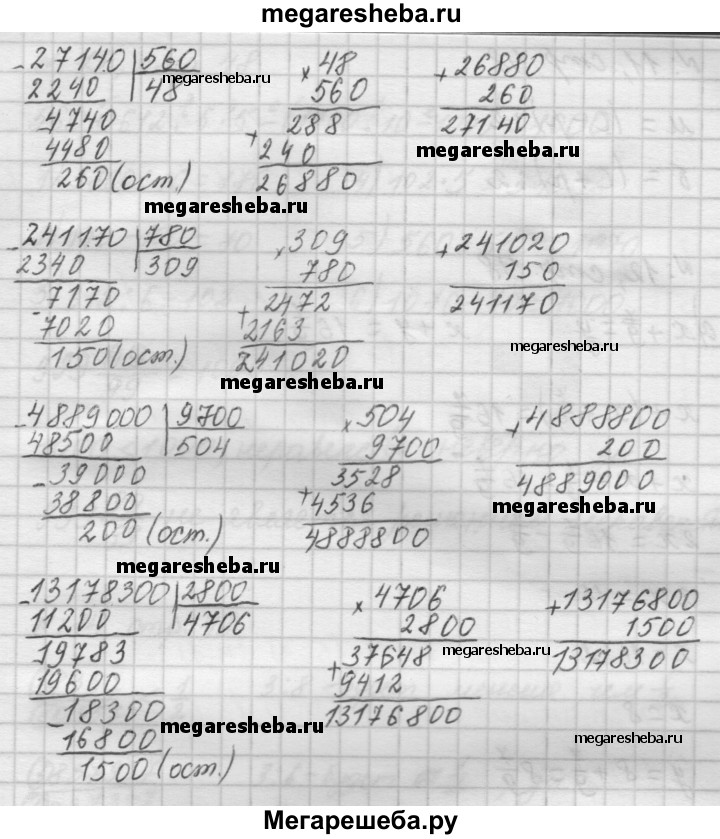 megaresheba.ru
- 27140 | 560
2240 | 48
- 4740
4480
260 (ост.)
× 48
560
288
+ 240
26880
+ 26880
260
27140
megaresheba.ru
megaresheba.ru
megaresheba.ru
- 241170 | 780
2340 | 309
- 7170
7020
150 (ост.)
× 309
780
2472
+ 2163
241020
+ 241020
150
241170
megaresheba.ru
megaresheba.ru
- 4889000 | 9700
48500 | 504
- 39000
38800
200 (ост.)
× 504
9700
3528
+ 4536
4888800
+ 4888800
200
4889000
megaresheba.ru
megaresheba.ru
- 13178300 | 2800
11200 | 4706
- 19783
19600
- 18300
16800
1500 (ост.)
× 4706
2800
37648
+ 9412
13176800
+ 13176800
1500
13178300
megaresheba.ru
megaresheba.ru
megaresheba.ru
Мегарешеба.ру